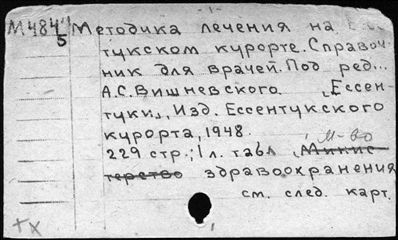 М484 Методика лечения на Ессен-
5
тукском курорте. Справоч
ник для врачей. Под ред...
А.С. Вишневского. Ессен-
туки, Изд. Ессентукского
курорта, 1948.
М-во
229 стр.; 1 л. табл. Минис
терство здравоохранения
см. след. карт.